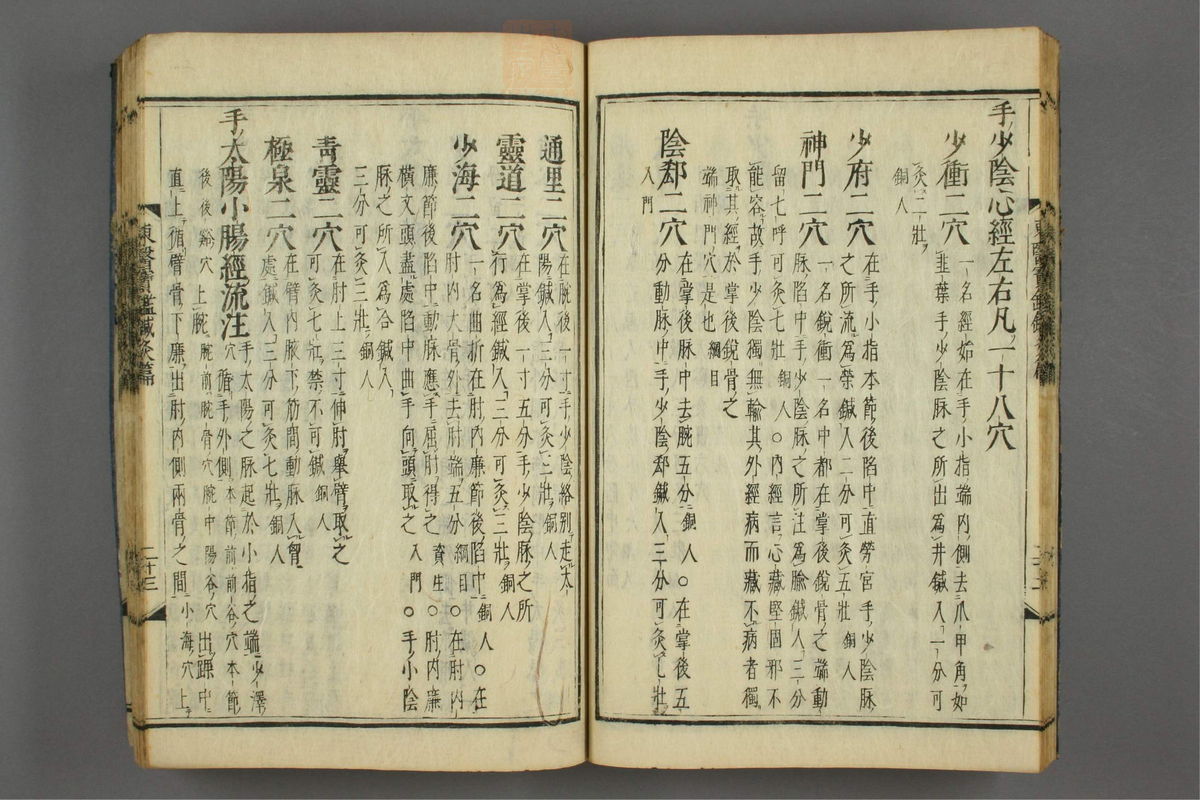 手少陰心經左右凡一十八穴
少衝二穴一名經始在手小指端內側去爪甲角如
韭葉手少陰脉之所出為井鍼入一分可
灸二壯
銅人
少府二穴在手小指本節後陷中直勞宮手少陰脉
之所流為榮鍼入二分可灸五壯銅人
神門二穴一名銳衝一名中都在掌後銳骨之端動
脉陷中手少陰脉之所注為腧鍼入三分
留七呼可灸七壯銅人○內經言心藏堅固邪不
能容故手少陰獨無輸其外經病而藏不病者獨
取其經於掌後銳骨之
端神門穴是也綱目
陰郄二穴在掌後脉中去腕五分銅人○在掌後五
分動脉中手少陰郄鍼入三分可灸七壯
入門
通里二穴在腕後一寸手少陰絡別走太
陽鍼入三分可灸三壯銅人
靈道二穴在掌後一寸五分手少陰脉之所
行為經鍼入三分可灸三壯銅人
少海二穴一名曲折在肘內廉節後陷中銅人○在
肘內大骨外去肘端五分綱目○在肘內
廉節後陷中動脉應手屈肘得之資生○肘內廉
橫文頭盡處陷中曲手向頭取之入門○手少陰
脉之所入為合鍼入
三分可灸三壯銅人
青靈二穴在肘上三寸伸肘擧臂取之
可灸七壯禁不可鍼銅人
極泉二穴在臂內腋下筋間動脉入胷
處鍼入三分可灸七壯銅人
手太陽小腸經流注手太陽之脉起於小指之端少澤
穴循手外側本節前前谷穴本節
後後谿穴上腕腕前腕骨穴腕中陽谷穴出踝中
直上循臂骨下廉出肘內側兩骨之間小海穴上
東醫寶鑑鍼灸篇
二十三